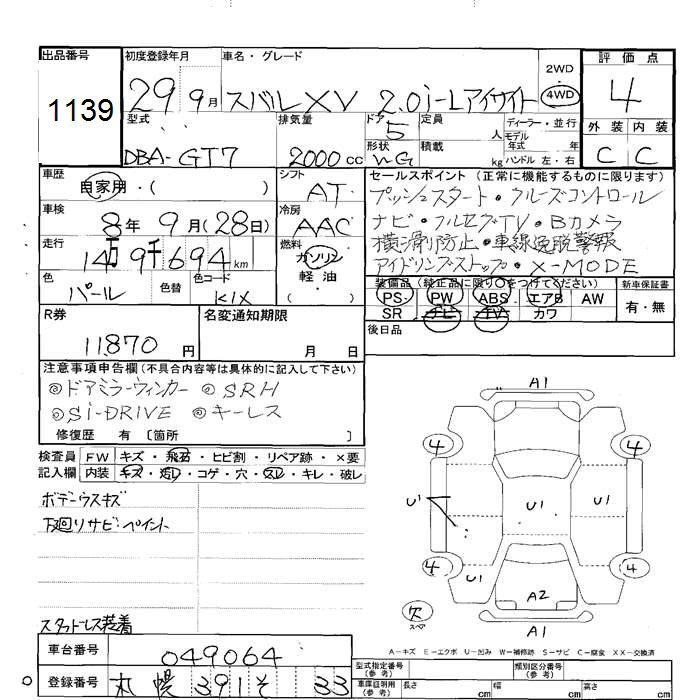 出品番号 初度登録年月 車名・グレード 2WD 4WD 評価点
1139 29 9月 スバルXV 2.0i-Lアイサイト 4
型式 排気量 ドア 定員 人 ディーラー・並行 外装 内装
DBA-GT7 2000cc 5 モデル年式 年式 C C
形状 WG 積載 kg ハンドル 左・右
車歴 自家用・( ) シフト AT セールスポイント (正常に機能するものに限ります)
プッシュスタート・クルーズコントロール
車検 8年 9月(28日) 冷房 AAC ナビ・フルセグTV・Bカメラ
走行 14万9千694km 燃料 ガソリン 軽油 ( ) 横滑り防止・車線逸脱警報
アイドリングストップ・X-MODE
色 パール 色替 色コード K1X
装備品 (純正品に限り○をつけてください) 新車保証書
PS PW ABS エアB AW 有・無
SR ナビ TV カワ
R券 11870円 名変通知期限 月 日 後日品
注意事項申告欄(不具合内容等は具体的に記入して下さい)
◎ドアミラーウィンカー ◎SRH
◎Si-DRIVE ◎キーレス
修復歴 有 〔箇所 〕
検査員 FW キズ・飛石・ヒビ割・リペア跡・×要
記入欄 内装 キズ・汚レ・コゲ・穴・スレ・キレ・破レ
ボデーウスキズ
下廻りサビ・ペイント
スタッドレス装着
A1
4 4
U1 U1 U1
4 4
U1 A2
欠 スペア A1
A-キズ E-エクボ U-凹み W-補修跡 S-サビ C-腐食 XX-交換済
車台番号 049064 型式指定番号 (参考) 類別区分番号 (参考)
登録番号 札幌 391 そ 33 車庫証明用 (参考) 長さ cm 幅 cm 高さ cm